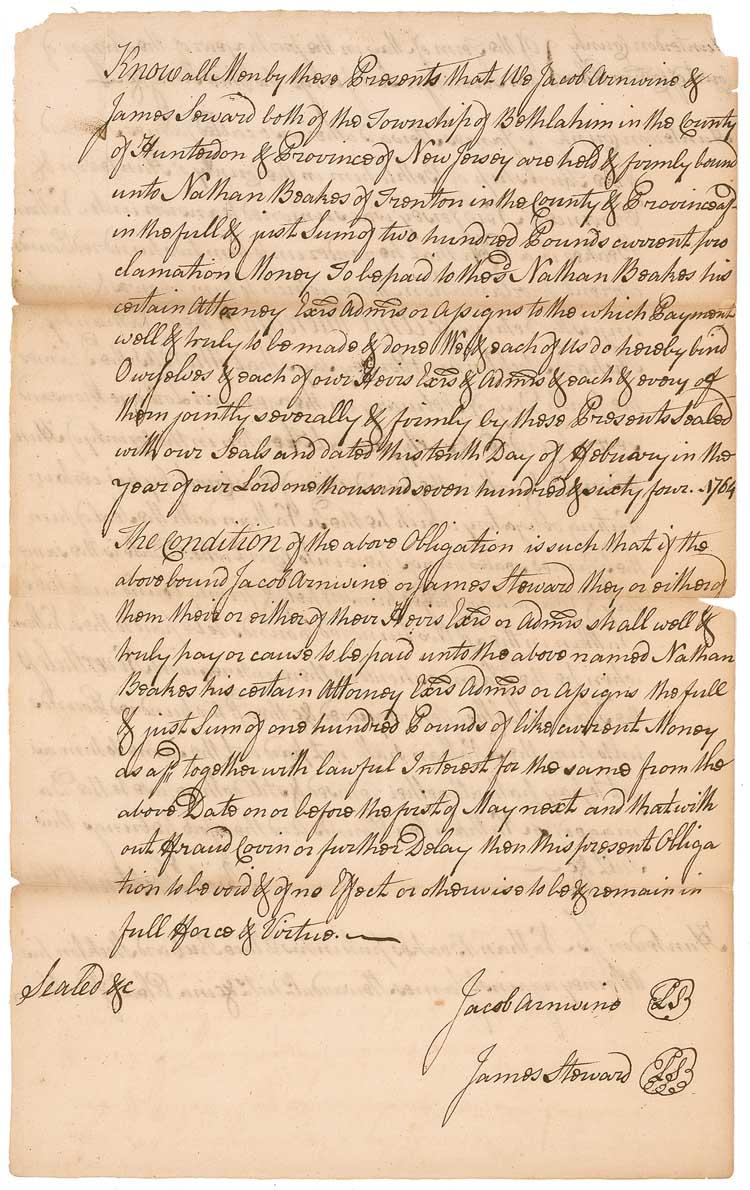 Know all Men by these Presents that We Jacob Arnwine &
James Seward both of the Township of Bethlahim in the County
of Hunterdon & Province of New Jersey are held & firmly bound
unto Nathan Beakes of Trenton in the County & Province afsd
in the full & just Sum of two hundred Pounds current pro
clamation Money To be paid to the sd Nathan Beakes his
certain Attorney Exrs Admrs or Assigns to the which Payment
well & truly to be made & done We & each of us do hereby bind
Ourselves & each of our Heirs Exrs & Admrs & each & every of
them jointly severally & firmly by these Presents Sealed
with our Seals and dated this tenth Day of Febuary in the
year of our Lord one thousand seven hundred & sixty four. 1764
The Condition of the above Obligation is such that if the
above bound Jacob Arnwine or James Steward they or either of
them their or either of their Heirs Exrs or Admrs shall well &
truly pay or cause to be paid unto the above named Nathan
Beakes his certain Attorney Exrs Admrs or Assigns the full
& just Sum of one hundred Pounds of like current Money
as afsd together with lawful Interest for the same from the
above Date on or before the first of May next and that with
out Fraud Covin or further Delay then this present Obliga
tion to be void & of no Effect or otherwise to be & remain in
full Force & Virtue.
Sealed &c
Jacob Arnwine LS
James Steward LS